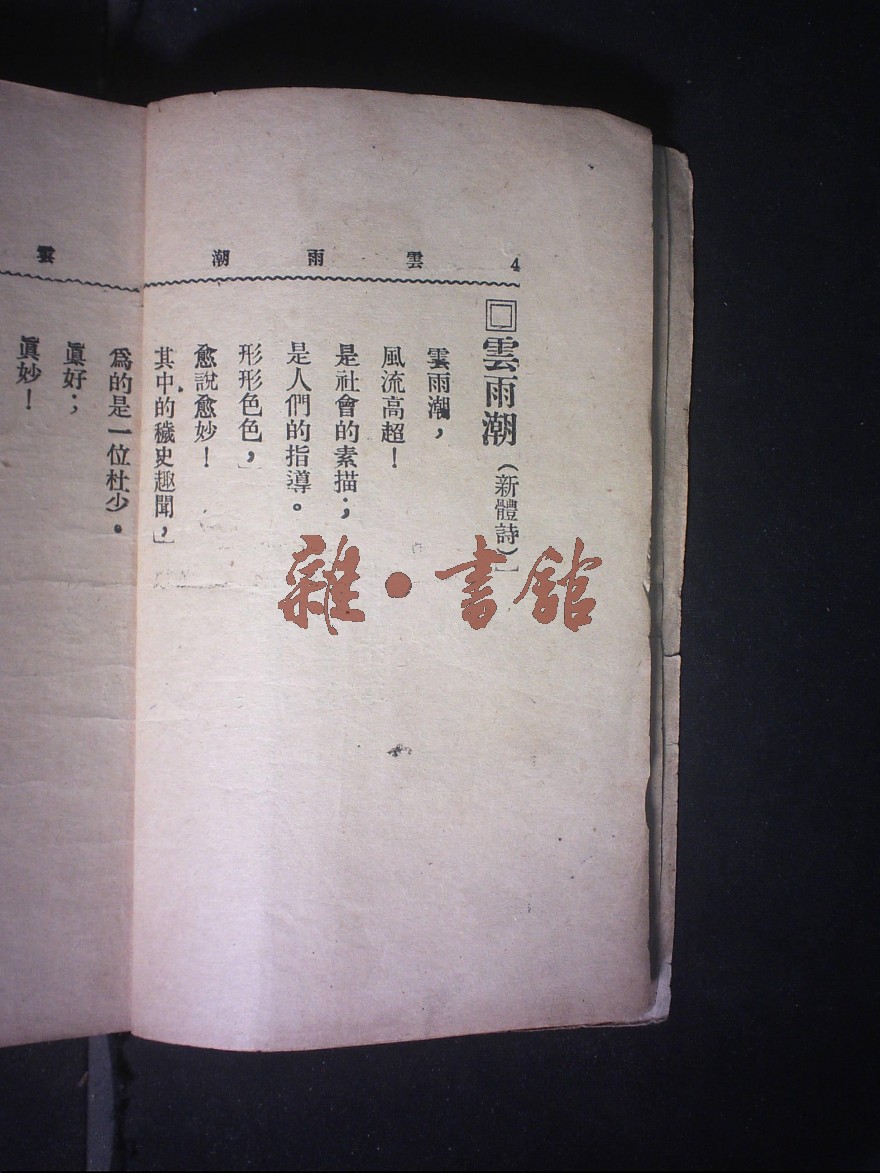 4 雲雨潮
回雲雨潮(新體詩)
雲雨潮,
風流高超!
是社會的素描;
是人們的指導。
形形色色,
愈說愈妙!
其中的穢史趣聞,
爲的是一位杜少。
眞好;
眞妙!
雲
雜·書館